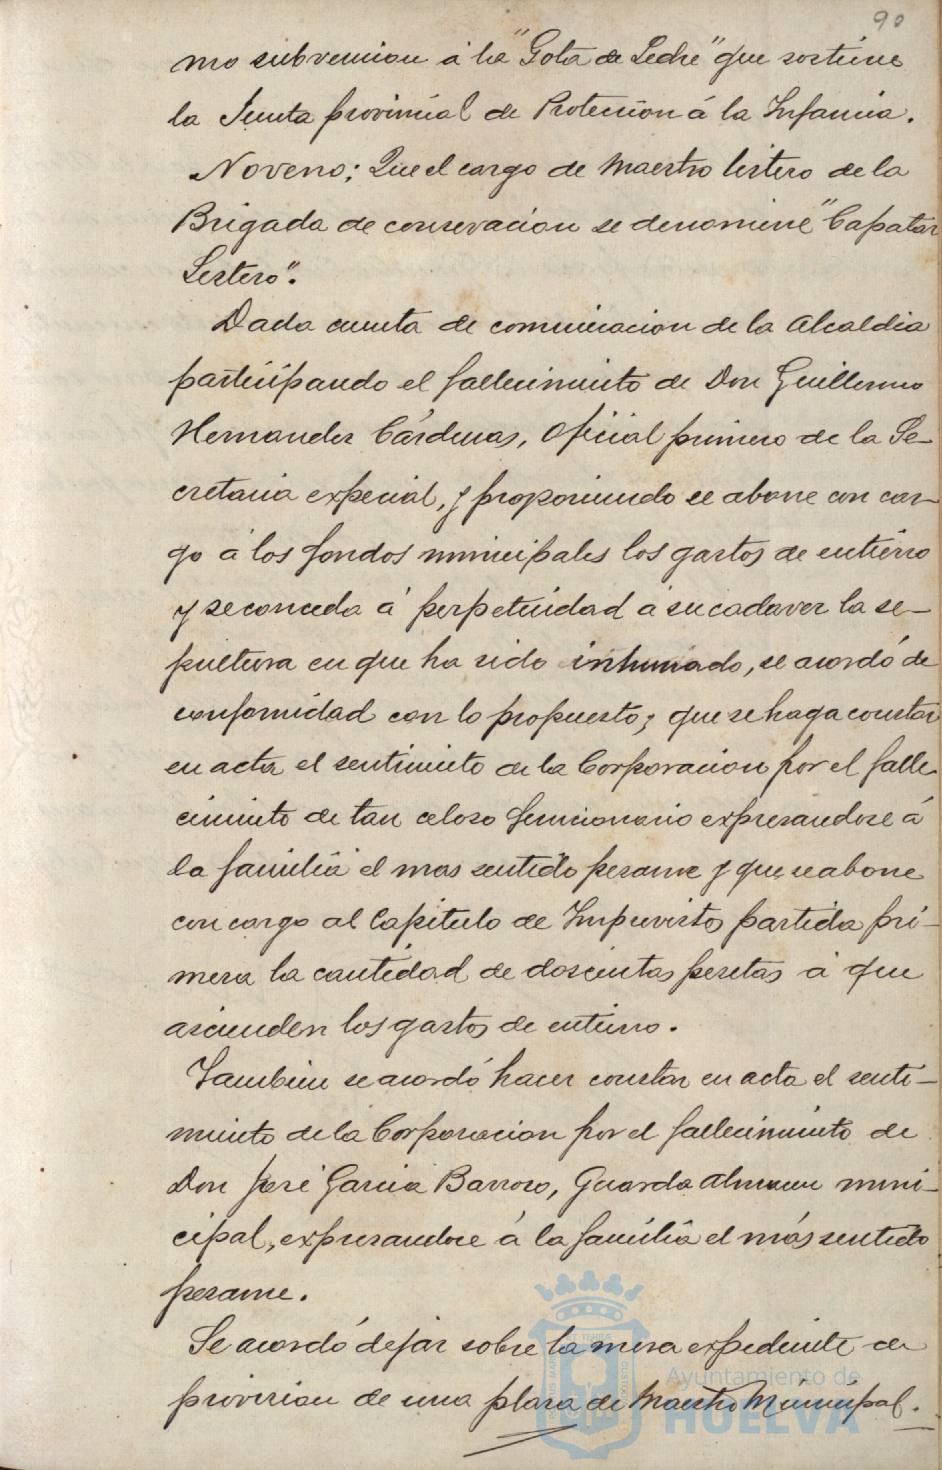 90
mo subvencion á la "Gota de Leche" que sostiene
la Junta provincial de Protección á la Infancia.
Noveno: Que el cargo de Maestro listero de la
Brigada de conservacion se denomine "Capataz
Listero".
Dada cuenta de comunicacion de la Alcaldia
participando el fallecimiento de Don Guillermo
Hernandez Cárdenas, Oficial primero de la Se-
cretaria especial, y proponiendo se abone con car-
go á los fondos municipales los gastos de entierro
y se conceda á perpetuidad á su cadaver la se-
pultura en que ha sido inhumado, se acordó de
conformidad con lo propuesto; que se haga constar
en acta el sentimiento de la Corporacion por el falle-
cimiento de tan celoso funcionario expresandose á
la familia el mas sentido pesame y que se abone
con cargo al Capitulo de Imprevistos partida pri-
mera la cantidad de doscientas pesetas á que
ascienden los gastos de entierro.
Tambien se acordó hacer constar en acta el senti-
miento de la Corporacion por el fallecimiento de
Don José Garcia Barroso, Guarda Almacen muni-
cipal, expresandose á la familia el más sentido
pesame.
Se acordó dejar sobre la mesa expediente de
provision de una plaza de Maestro Municipal.
Ayuntamiento de
HUELVA